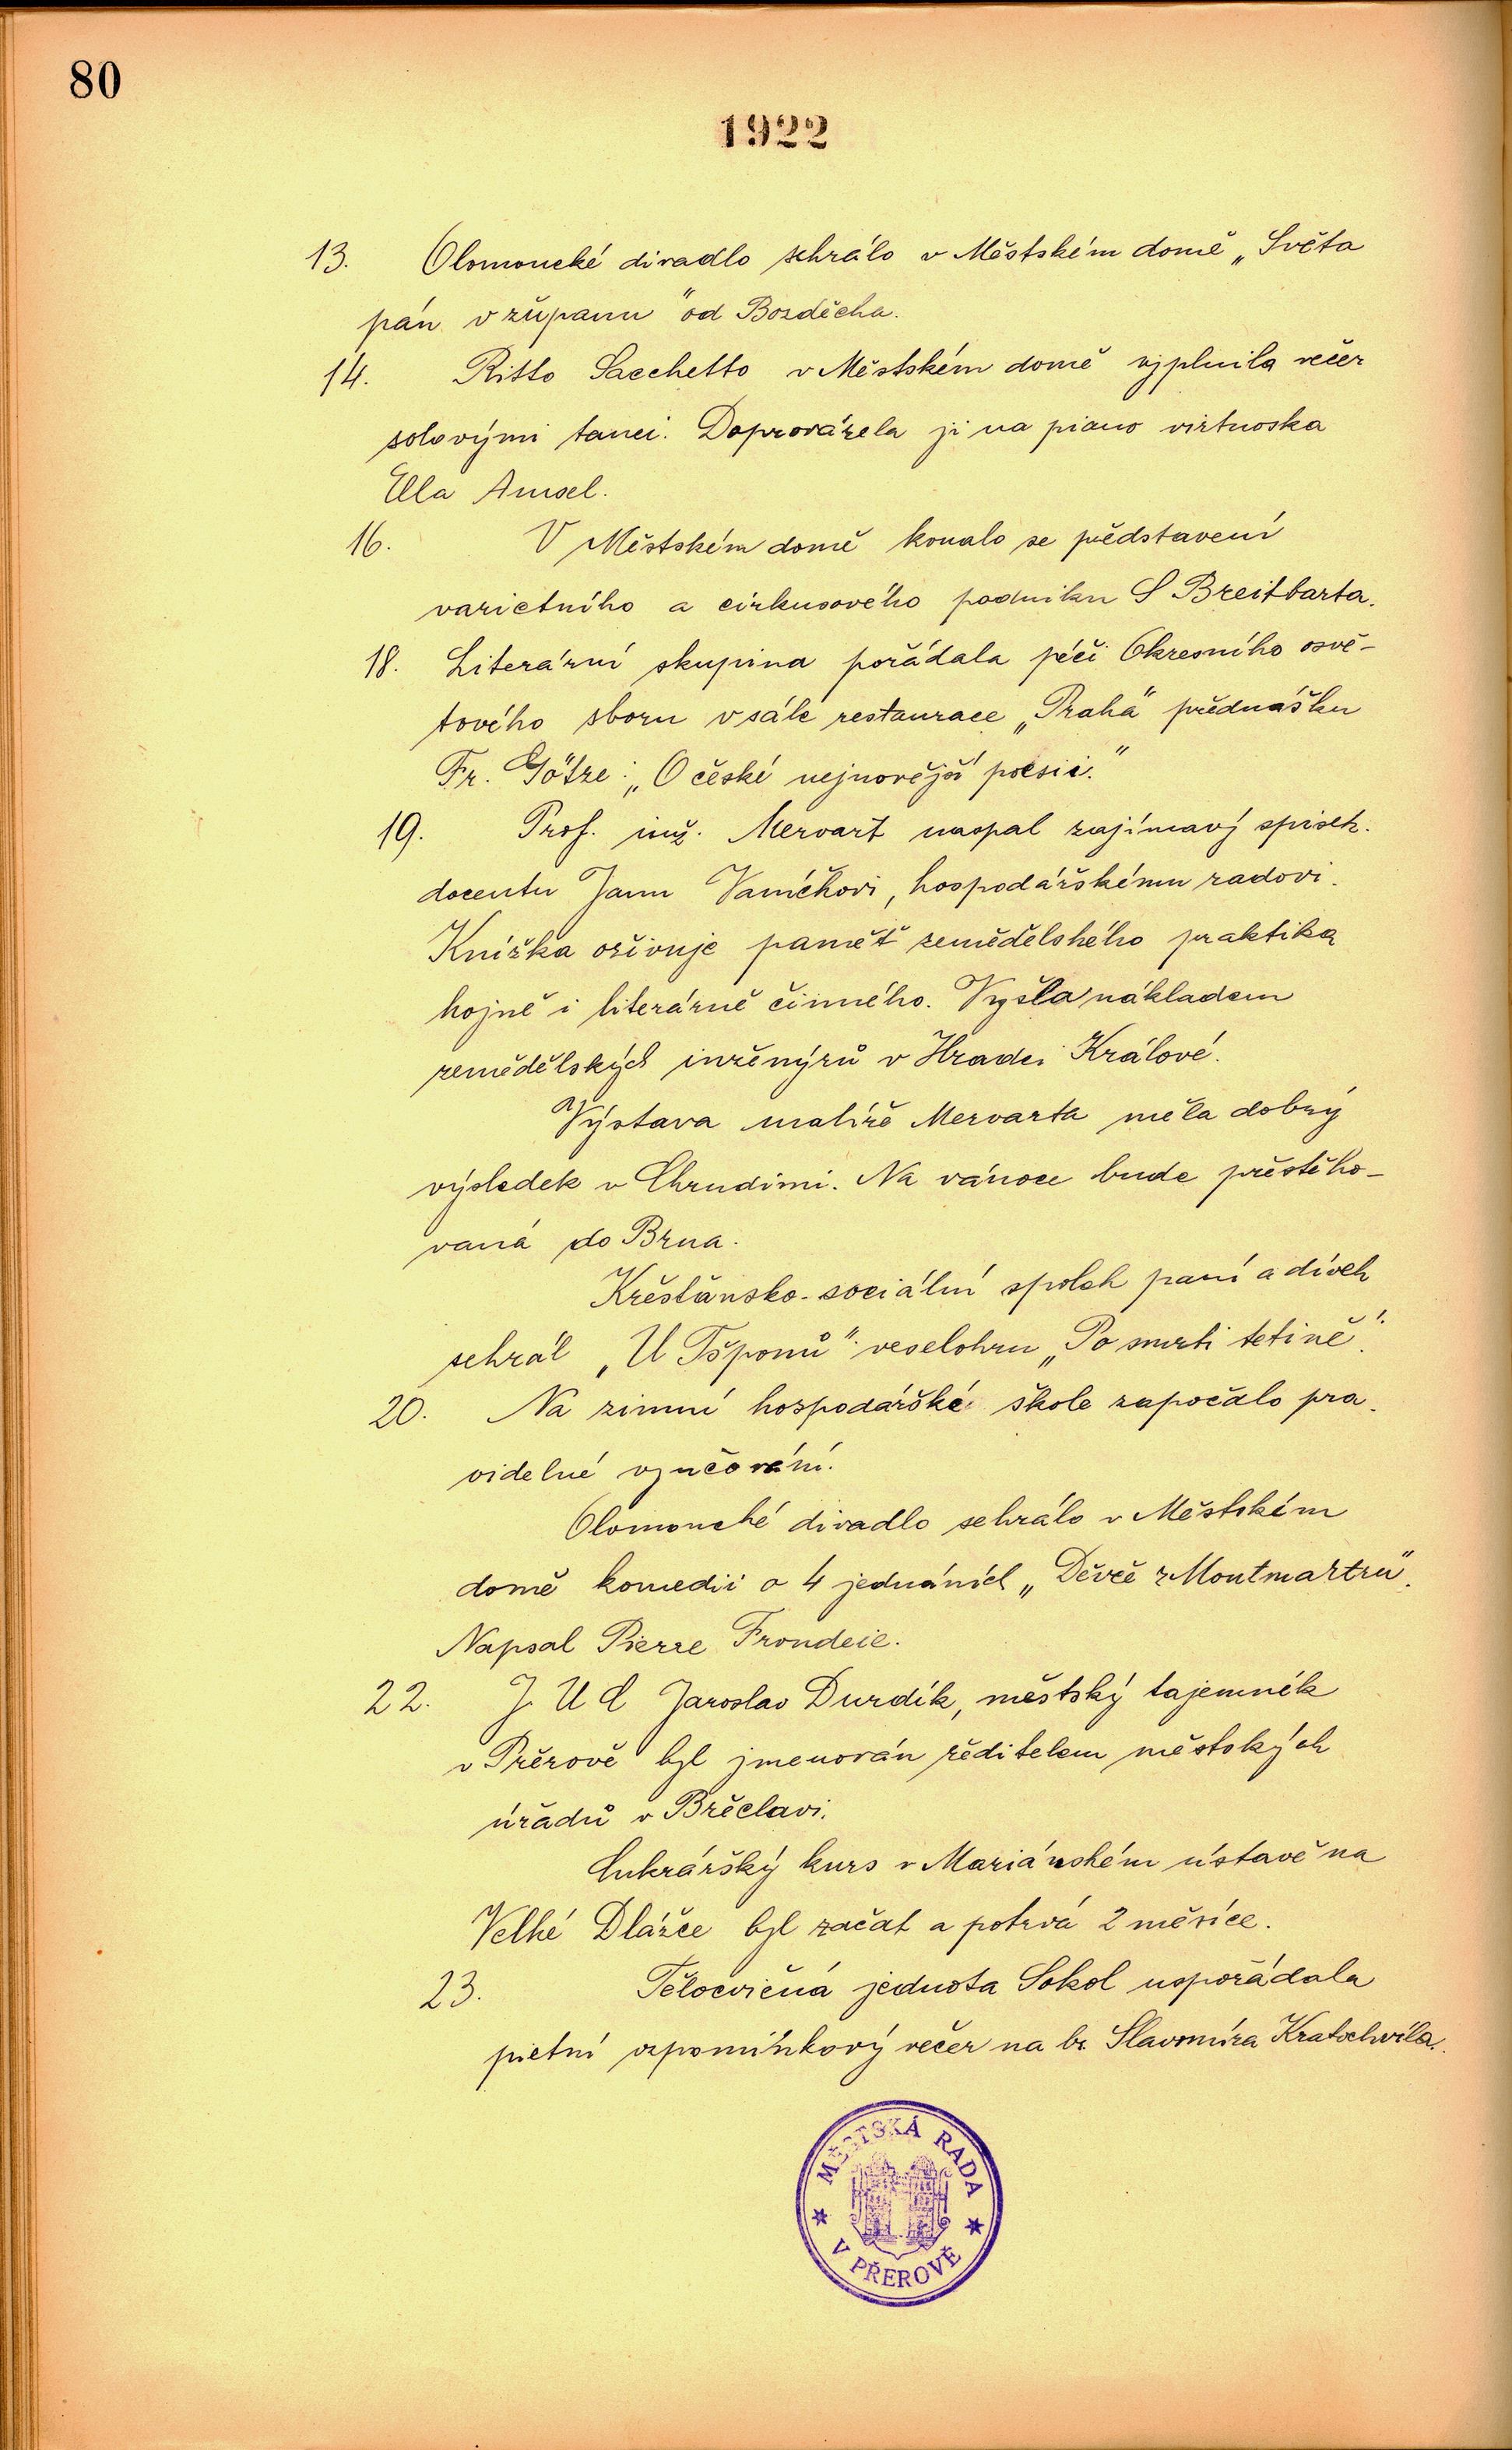 80
1922
13. Olomoucké divadlo sehrálo v Městském domě „Světa
pán v županu" od Bozděcha.
14. Ritto Sacchetto v Městském domě vyplnila večer
solovými tanci. Doprovázela ji na piano virtuoska
Ella Amsel.
16. V Městském domě konalo se představení
varietního a cirkusového podniku S Breitbarta.
18. Literární skupina pořádala péčí Okresního osvě-
tového sboru v sále restaurace „Praha" přednášku
Fr. Götze: „O české nejnovější poesii."
19. Prof. inž. Mervart napsal zajímavý spisek
docentu Janu Vaníčkovi, hospodářskému radovi.
Knížka oživuje paměť zemědělského praktika
hojně i literárně činného. Vyšla nákladem
zemědělských inženýrů v Hradci Králové.
Výstava malíře Mervarta měla dobrý
výsledek v Chrudimi. Na vánoce bude přestěho-
vaná do Brna.
Křesťansko-sociální spolek paní a dívek
sehrál „U Tšponů" veselohru „Po smrti tetině".
20. Na zimní hospodářské škole započalo pra-
videlné vyučování.
Olomoucké divadlo sehrálo v Městském
domě komedii o 4 jednáních „Děvče z Montmartru".
Napsal Pierre Frondeie.
22. J U C Jaroslav Durdík, městský tajemník
v Přerově byl jmenován ředitelem městských
úřadů v Břeclavi.
Cukrářský kurs v Mariánském ústavě na
Velké Dlážce byl začat a potrvá 2 měsíce.
23. Tělocvičná jednota Sokol uspořádala
pietní vzpomínkový večer na br. Slavomíra Kratochvíla.
MĚSTSKÁ RADA
V PŘEROVĚ